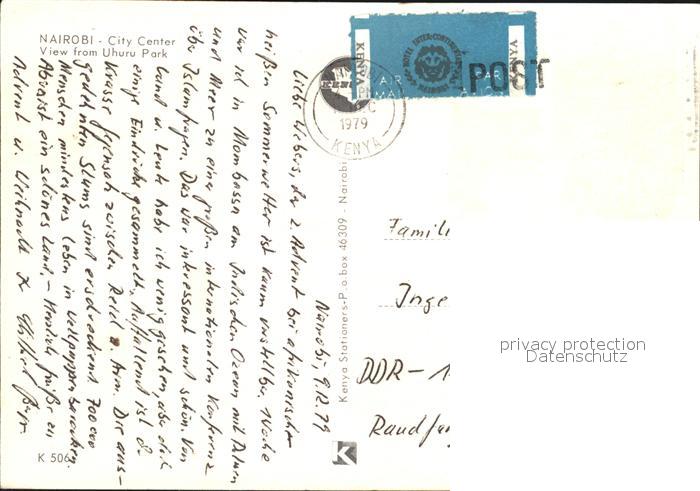 NAIROBI - City Center
View from Uhuru Park
Nairobi, 9.12.79
Liebe Webers, der 2. Advent bei afrikanischem
heißen Sommerwetter ist kaum vorstellbar. 1 Woche
war ich in Mombassa am Indischen Ozean mit Palmen
und Meer zu einer großen internationalen Konferenz
über Islamfragen. Das war interessant und schön. Von
Land u. Leute habe ich wenig gesehen, aber doch
einige Eindrücke gesammelt. Auffallend ist d.
krasse Gegensatz zwischen Reich u. Arm. Die aus-
gedehnten Slums sind erschreckend. 700 000
Menschen mindestens leben in Wellpappebaracken.
Ansonst ein schönes Land. - Herzliche Grüße zu
Advent u. Weihnacht
K 506
Kenya Stationers-P.o box 46309 - Nairobi
KENYA
AIR
MAIL
HOTEL INTER-CONTINENTAL
NAIROBI
PAR
KENYA
POST
NAIROBI
PM
1979
KENYA
Famili
Inge
DDR - 1
Randfa
privacy protection
Datenschutz